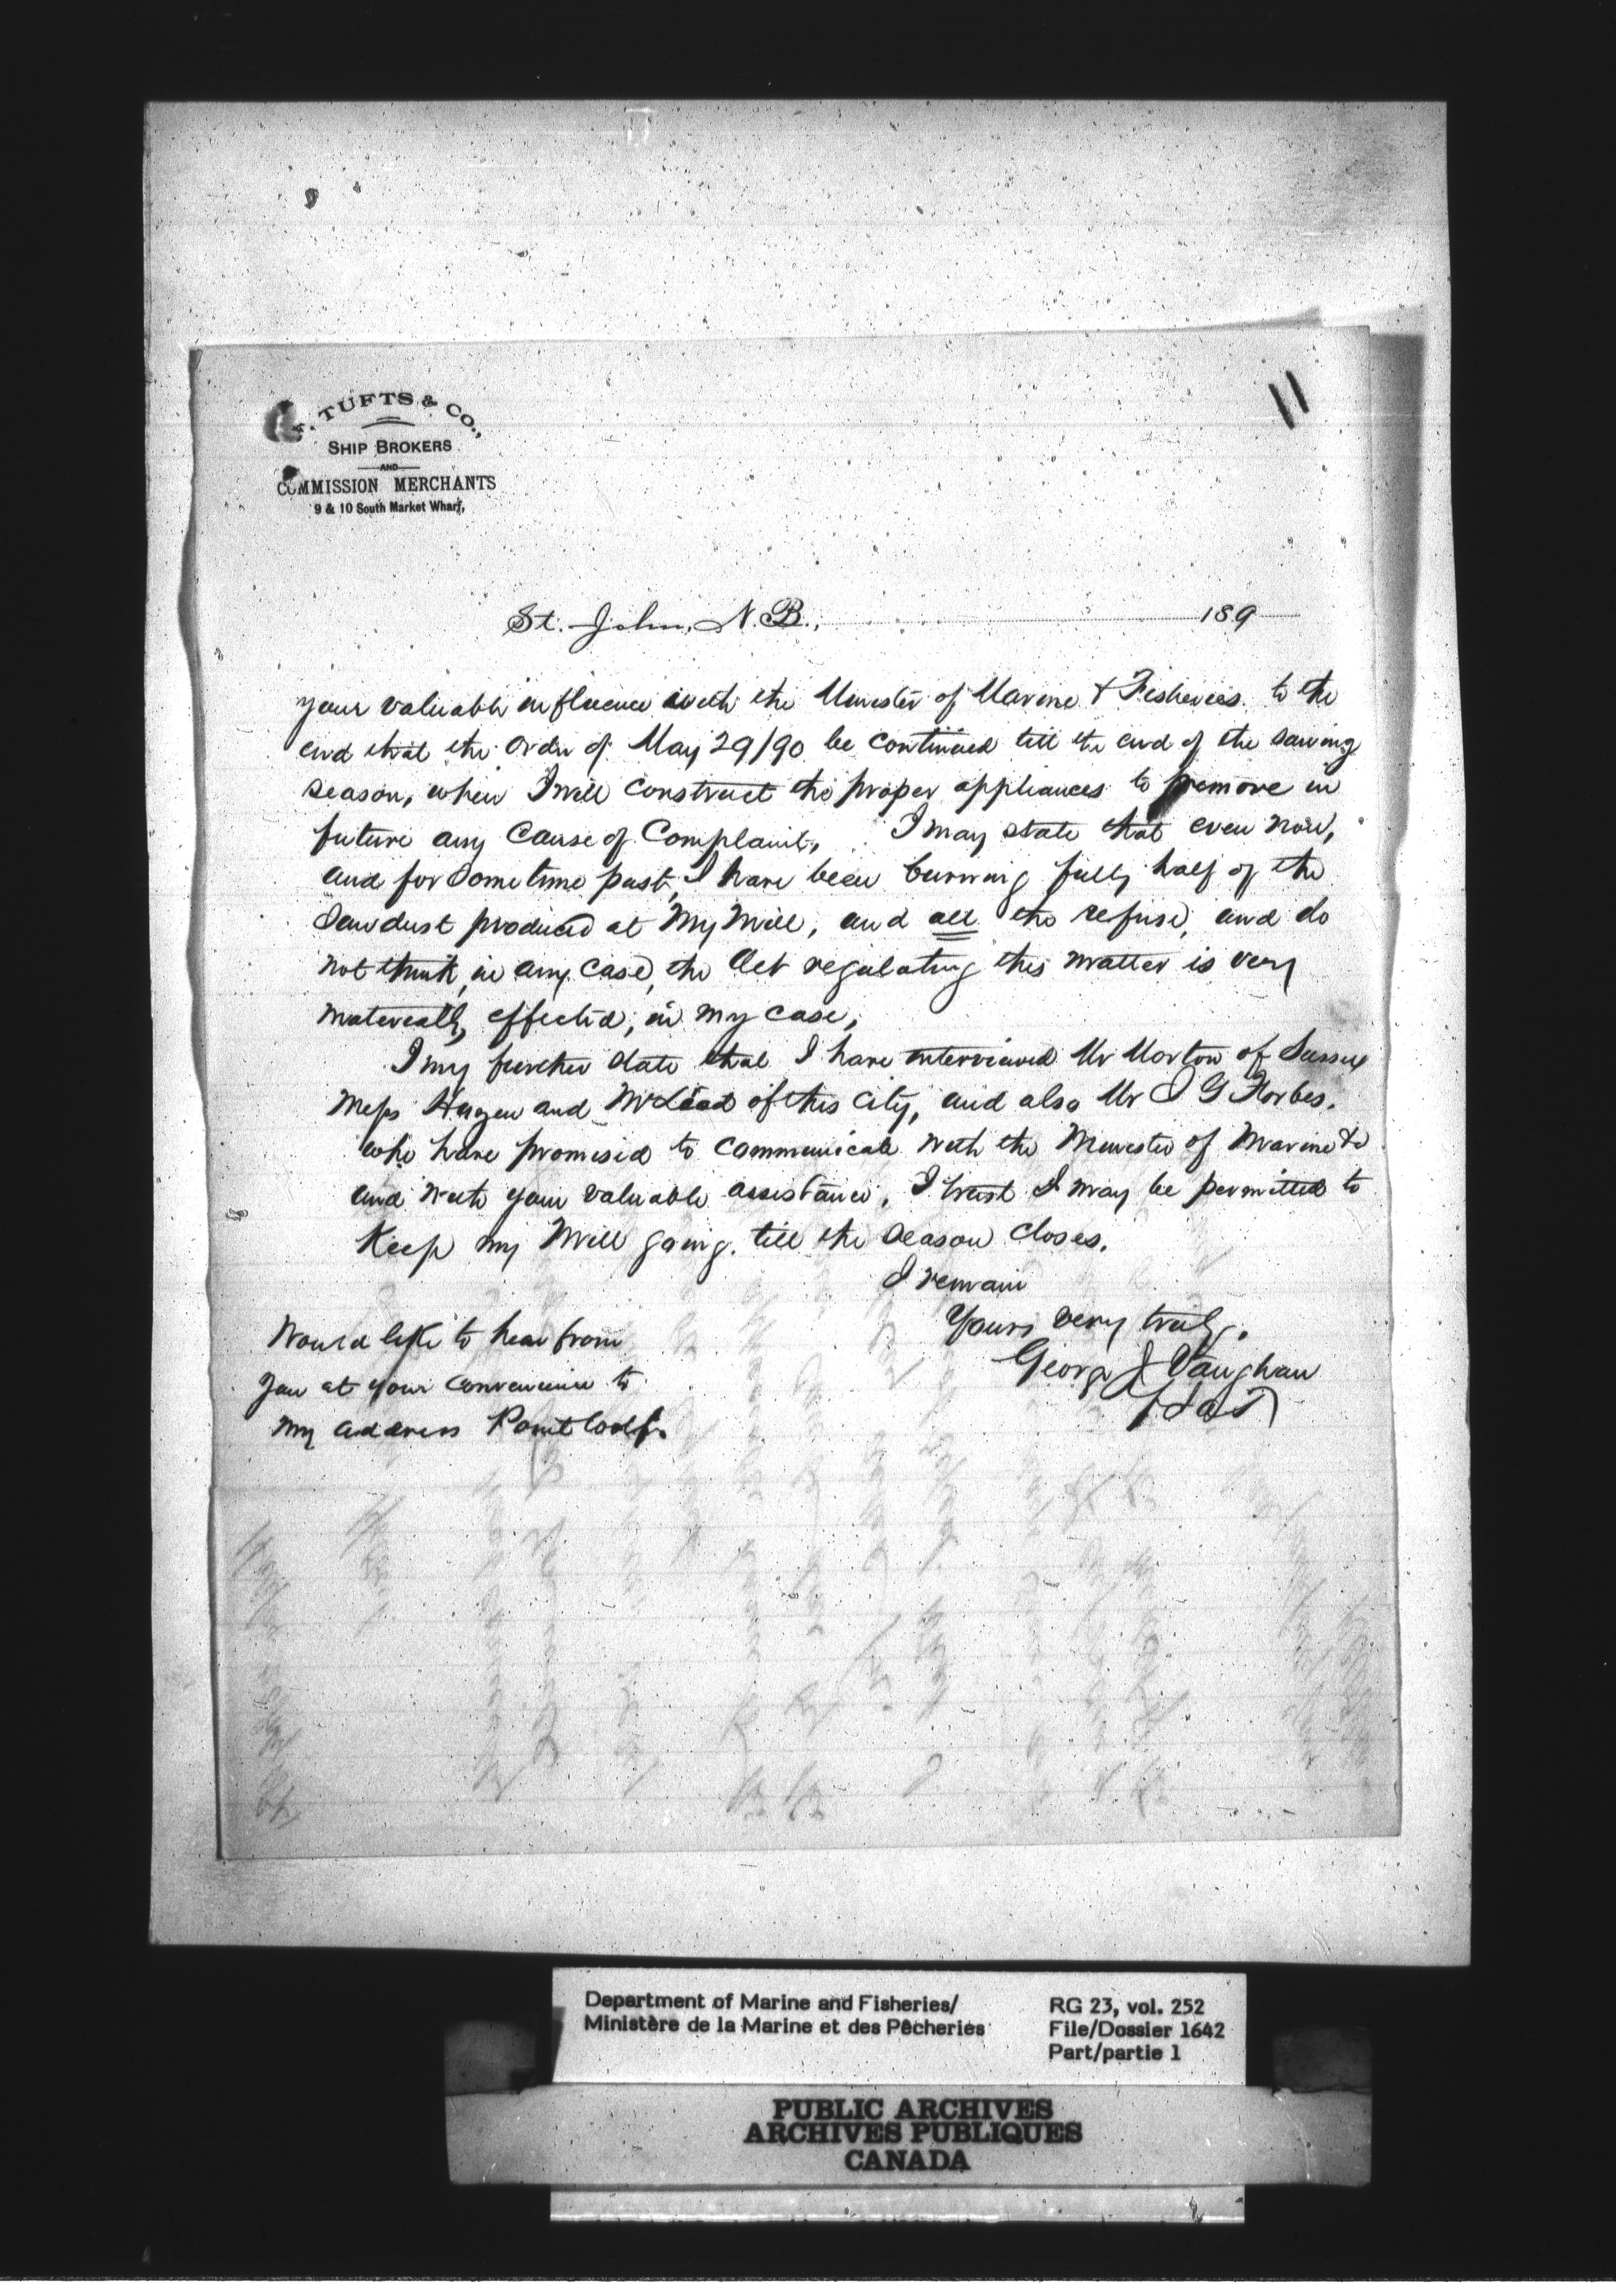 11
. TUFTS & CO.,
SHIP BROKERS
AND
COMMISSION MERCHANTS
9 & 10 South Market Wharf,
St. John, N. B., 189
your valuable influence with the Minister of Marine & Fisheries to the
end that the order of May 29/90 be continued till the end of the sawing
season, when I will construct the proper appliances to remove in
future any cause of Complaint. I may state that even now,
and for sometime past, I have been burning fully half of the
Sawdust produced at My Mill, and all the refuse, and do
not think, in any case, the Act regulating this matter is very
materially effected, in my case,
I my further state that I have interviewed Mr Morton of Sussex
Messs Hazen and McLeod of this City, and also Mr J G Forbes,
who have promised to communicate with the Minister of Marine &c
and with your valuable assistance, I trust I may be permitted to
Keep my Mill going till the season closes.
I remain
Yours very truly,
George J Vaughan
Would like to hear from
you at your convenience to
my address Point Wolf.
Department of Marine and Fisheries/
Ministère de la Marine et des Pêcheries
RG 23, vol. 252
File/Dossier 1642
Part/partie 1
PUBLIC ARCHIVES
ARCHIVES PUBLIQUES
CANADA